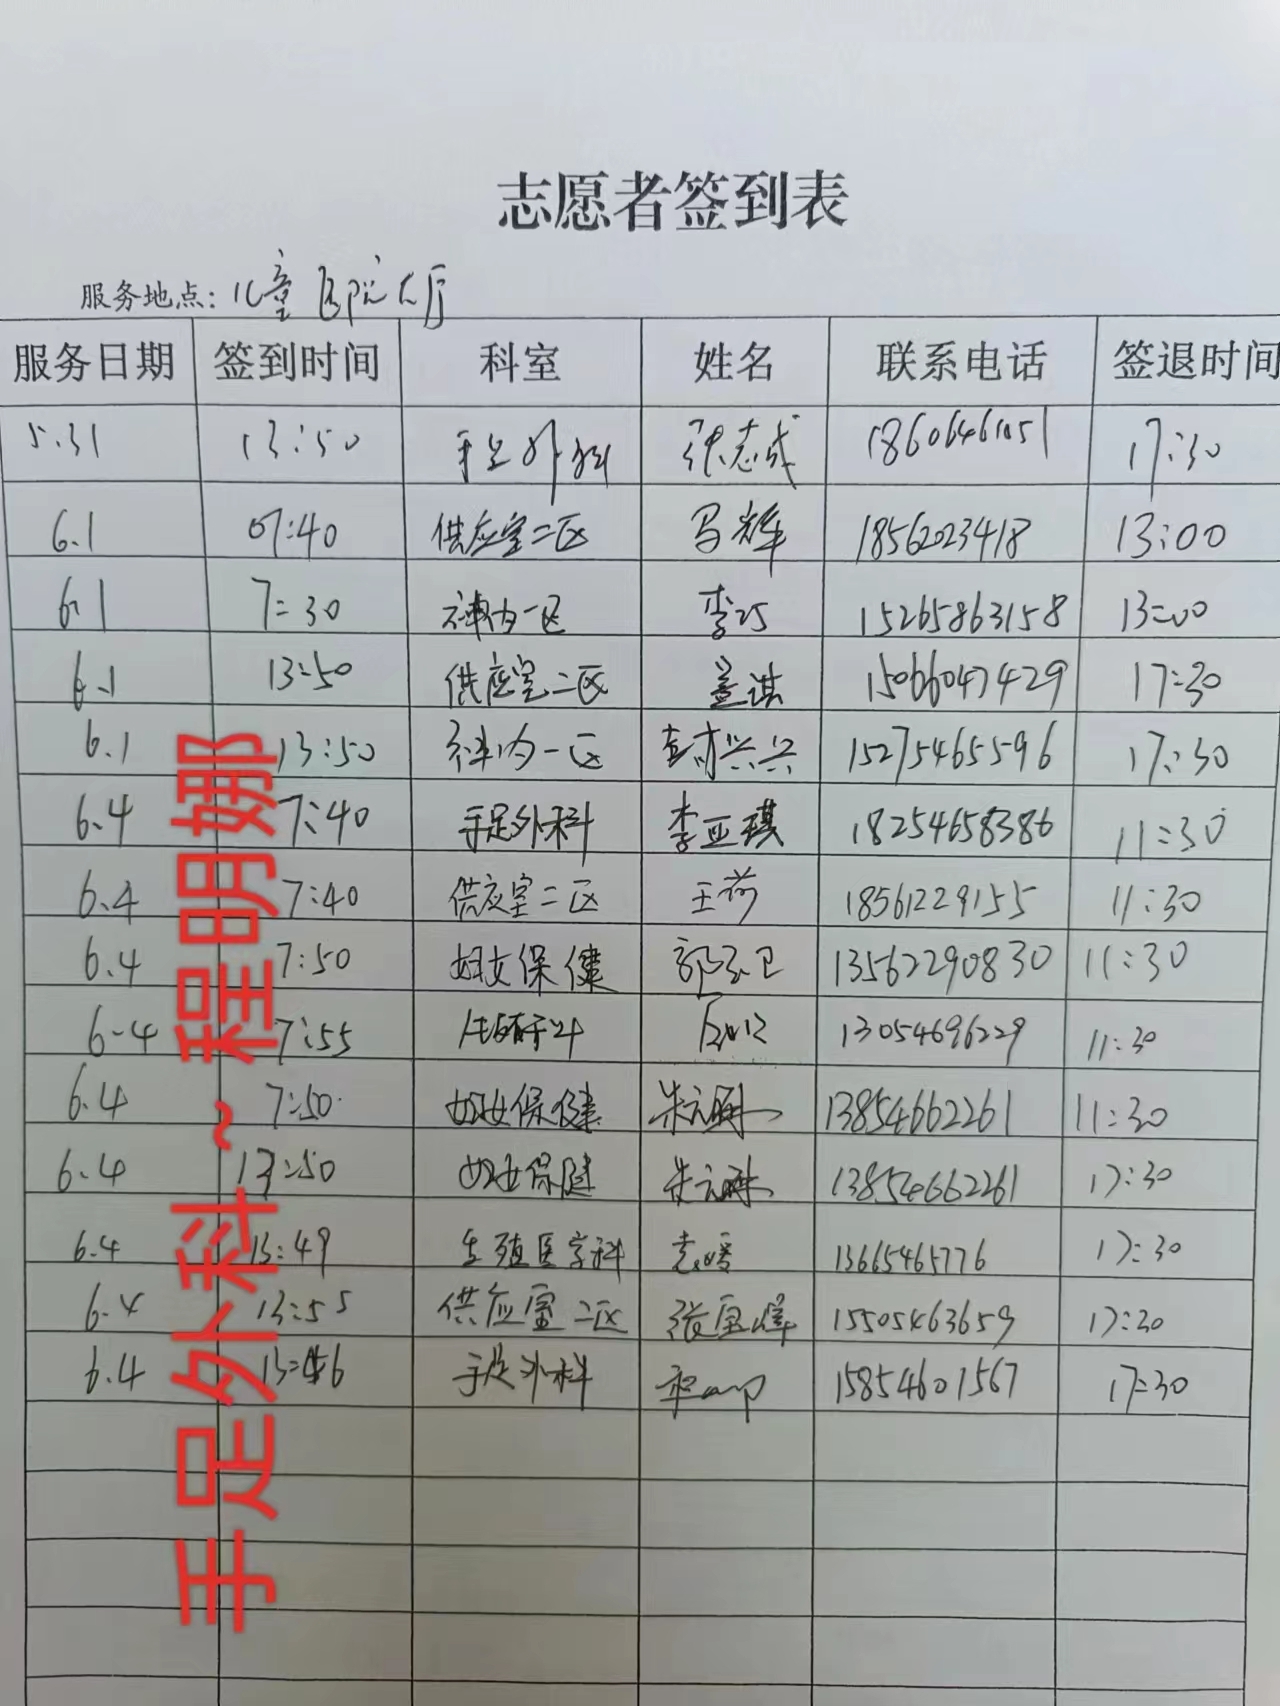 志愿者签到表
服务地点: 儿童医院大厅
服务日期 签到时间 科室 姓名 联系电话 签退时间
5.31 13:50 手足外科 张志成 18606461051 17:30
6.1 07:40 供应室二区 马辉 18562023418 13:00
6.1 7:30 神内一区 李巧 15265863158 13:00
6.1 13:50 供应室二区 盖琪 15066047429 17:30
6.1 13:50 神内一区 兴兴 15275465596 17:30
6.4 7:40 手足外科 李亚琪 18254658386 11:30
6.4 7:40 供应室二区 王荷 18561229155 11:30
6.4 7:50 妇女保健 郭 卫 13562290830 11:30
6-4 7:55 13054696229 11:30
6.4 7:50 妇女保健 朱元 13854662261 11:30
6.4 13:50 妇女保健 朱元 13854662261 17:30
6.4 13:49 生殖医学科 袁媛 13665465776 17:30
6.4 13:55 供应室二区 张 15505463659 17:30
6.4 13:46 手足外科 15854601567 17:30
手足外科~程明娜